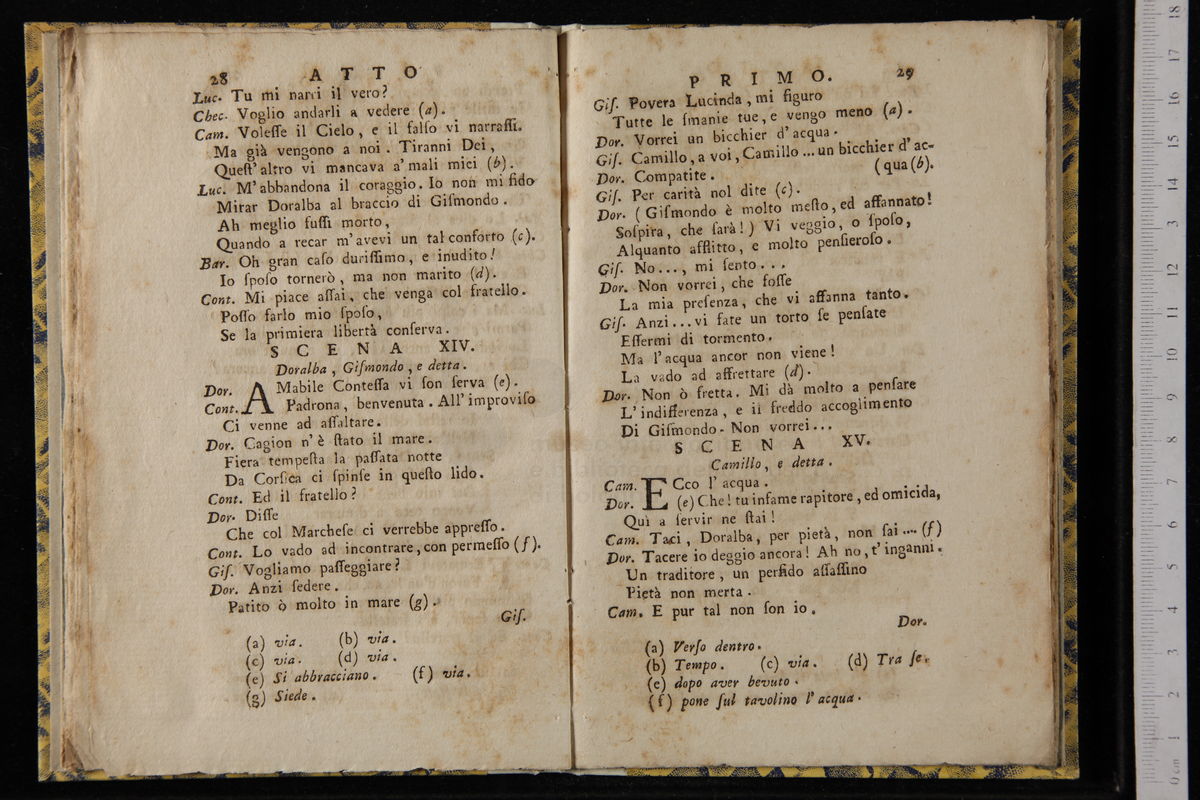 28 ATTO
Luc. Tu mi narri il vero?
Chec. Voglio andarli a vedere (a).
Cam. Voleſſe il Cielo, e il falſo vi narraſſi.
Ma già vengono a noi. Tiranni Dei,
Queſt' altro vi mancava a' mali miei (b).
Luc. M' abbandona il coraggio. Io non mi fido
Mirar Doralba al braccio di Giſmondo.
Ah meglio fuſſi morto,
Quando a recar m' avevi un tal conforto (c).
Bar. Oh gran caſo duriſſimo, e inudito!
Io ſpoſo tornerò, ma non marito (d).
Cont. Mi piace aſſai, che venga col fratello.
Poſſo farlo mio ſpoſo,
Se la primiera libertà conſerva.
SCENA XIV.
Doralba, Giſmondo, e detta.
Dor. AMabile Conteſſa vi ſon ſerva (e).
Cont. Padrona, benvenuta. All' improviſo
Ci venne ad aſſaltare.
Dor. Cagion n' è ſtato il mare.
Fiera tempeſta la paſſata notte
Da Corſica ci ſpinſe in queſto lido.
Cont. Ed il fratello?
Dor. Diſſe
Che col Marcheſe ci verrebbe appreſſo.
Cont. Lo vado ad incontrare, con permeſſo (f).
Giſ. Vogliamo paſſeggiare?
Dor. Anzi ſedere.
Patito ò molto in mare (g).
Giſ.
(a) via. (b) via.
(c) via. (d) via.
(e) Si abbracciano. (f) via.
(g) Siede.
PRIMO. 29
Giſ. Povera Lucinda, mi figuro
Tutte le ſmanie tue, e vengo meno (a).
Dor. Vorrei un bicchier d' acqua.
Giſ. Camillo, a voi, Camillo ... un bicchier d' ac-
Dor. Compatite. (qua (b).
Giſ. Per carità nol dite (c).
Dor. (Giſmondo è molto meſto, ed affannato!
Soſpira, che ſarà!) Vi veggio, o ſpoſo,
Alquanto afflitto, e molto penſieroſo.
Giſ. No..., mi ſento...
Dor. Non vorrei, che foſſe
La mia preſenza, che vi affanna tanto.
Giſ. Anzi... vi fate un torto ſe penſate
Eſſermi di tormento.
Ma l' acqua ancor non viene!
La vado ad affrettare (d).
Dor. Non ò fretta. Mi dà molto a penſare
L' indifferenza, e il freddo accoglimento
Di Giſmondo. Non vorrei...
SCENA XV.
Camillo, e detta.
Cam. ECco l' acqua.
Dor. (e) Che! tu infame rapitore, ed omicida,
Quì a ſervir ne ſtai!
Cam. Taci, Doralba, per pietà, non ſai .... (f)
Dor. Tacere io deggio ancora! Ah no, t' inganni.
Un traditore, un perfido aſſaſſino
Pietà non merta.
Cam. E pur tal non ſon io.
Dor.
(a) Verſo dentro.
(b) Tempo. (c) via. (d) Tra ſe.
(e) dopo aver bevuto.
(f) pone ſul tavolino l' acqua.
0 cm 1 2 3 4 5 6 7 8 9 10 11 12 13 14 15 16 17 18